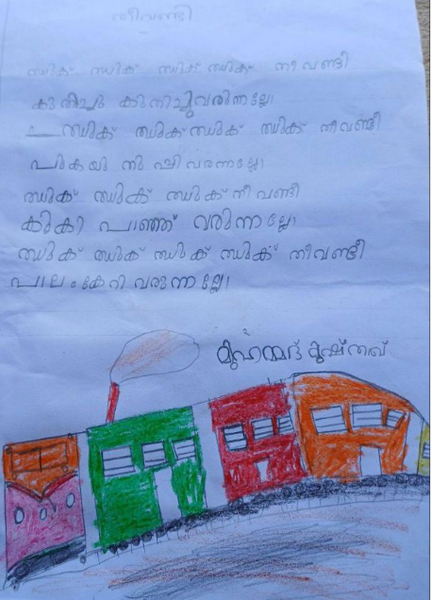 തീവണ്ടി
ഝുക് ഝുക് ഝുക് ഝുക് തീവണ്ടി
കുതിച്ചു കുതിച്ചുവരുന്നല്ലോ
ഝുക് ഝുക് ഝുക് ഝുക് തീവണ്ടി
പുകയും വരുന്നല്ലോ
ഝുക് ഝുക് ഝുക് തീവണ്ടി
കൂകി പാഞ്ഞ് വരുന്നല്ലോ
ഝുക് ഝുക് ഝുക് ഝുക് തീവണ്ടി
പാലം കേറി വരുന്നല്ലോ
മുഹമ്മദ് മുഷ്തഖ്